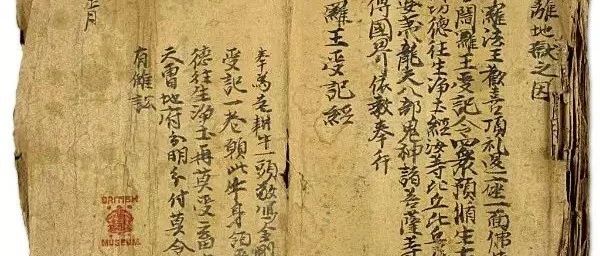 離地獄之因
羅法王歡喜頂礼退坐一面佛
閻羅王受記令四衆預脩生七
功德往生淨土經汝等比丘比丘尼
天龍八部鬼神諸菩薩等
傳國界依教奉行
羅王受記經
奉為老耕牛一頭敬寫金剛
受記一卷願此牛身領
德往生淨土再莫受畜
天曹地府分明分付莫令
有讎訟
正月
BRITISH
MUSEUM